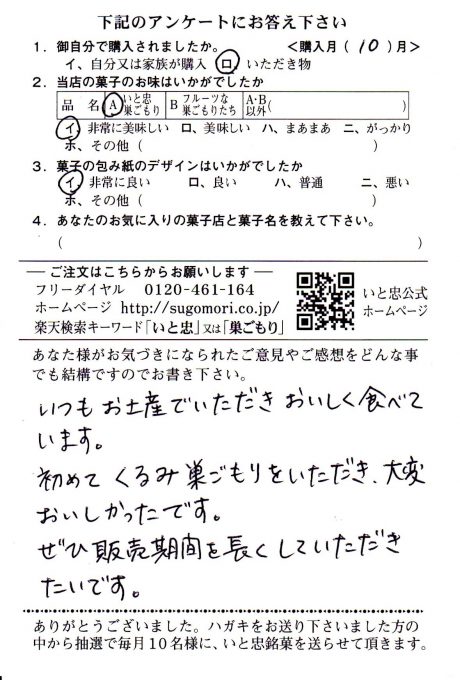 下記のアンケートにお答え下さい
1．御自分で購入されましたか。　＜購入月（10）月＞
イ、自分又は家族が購入　ロ、いただき物
2．当店の菓子のお味はいかがでしたか
品　名　A　いと忠巣ごもり　B　フルーツな巣ごもりたち　A・B以外（　　　）
イ、非常に美味しい　ロ、美味しい　ハ、まあまあ　ニ、がっかり
ホ、その他（　　　）
3．菓子の包み紙のデザインはいかがでしたか
イ、非常に良い　ロ、良い　ハ、普通　ニ、悪い
ホ、その他（　　　）
4．あなたのお気に入りの菓子店と菓子名を教えて下さい。
（　　　）
― ご注文はこちらからお願いします ―
フリーダイヤル　0120-461-164
ホームページ　http://sugomori.co.jp/
楽天検索キーワード「いと忠」又は「巣ごもり」
いと忠公式
ホームページ
あなた様がお気づきになられたご意見やご感想をどんな事
でも結構ですのでお書き下さい。
いつもお土産でいただきおいしく食べて
います。
初めてくるみ巣ごもりをいただき、大変
おいしかったです。
ぜひ販売期間を長くしていただき
たいです。
ありがとうございました。ハガキをお送り下さいました方の
中から抽選で毎月10名様に、いと忠銘菓を送らせて頂きます。